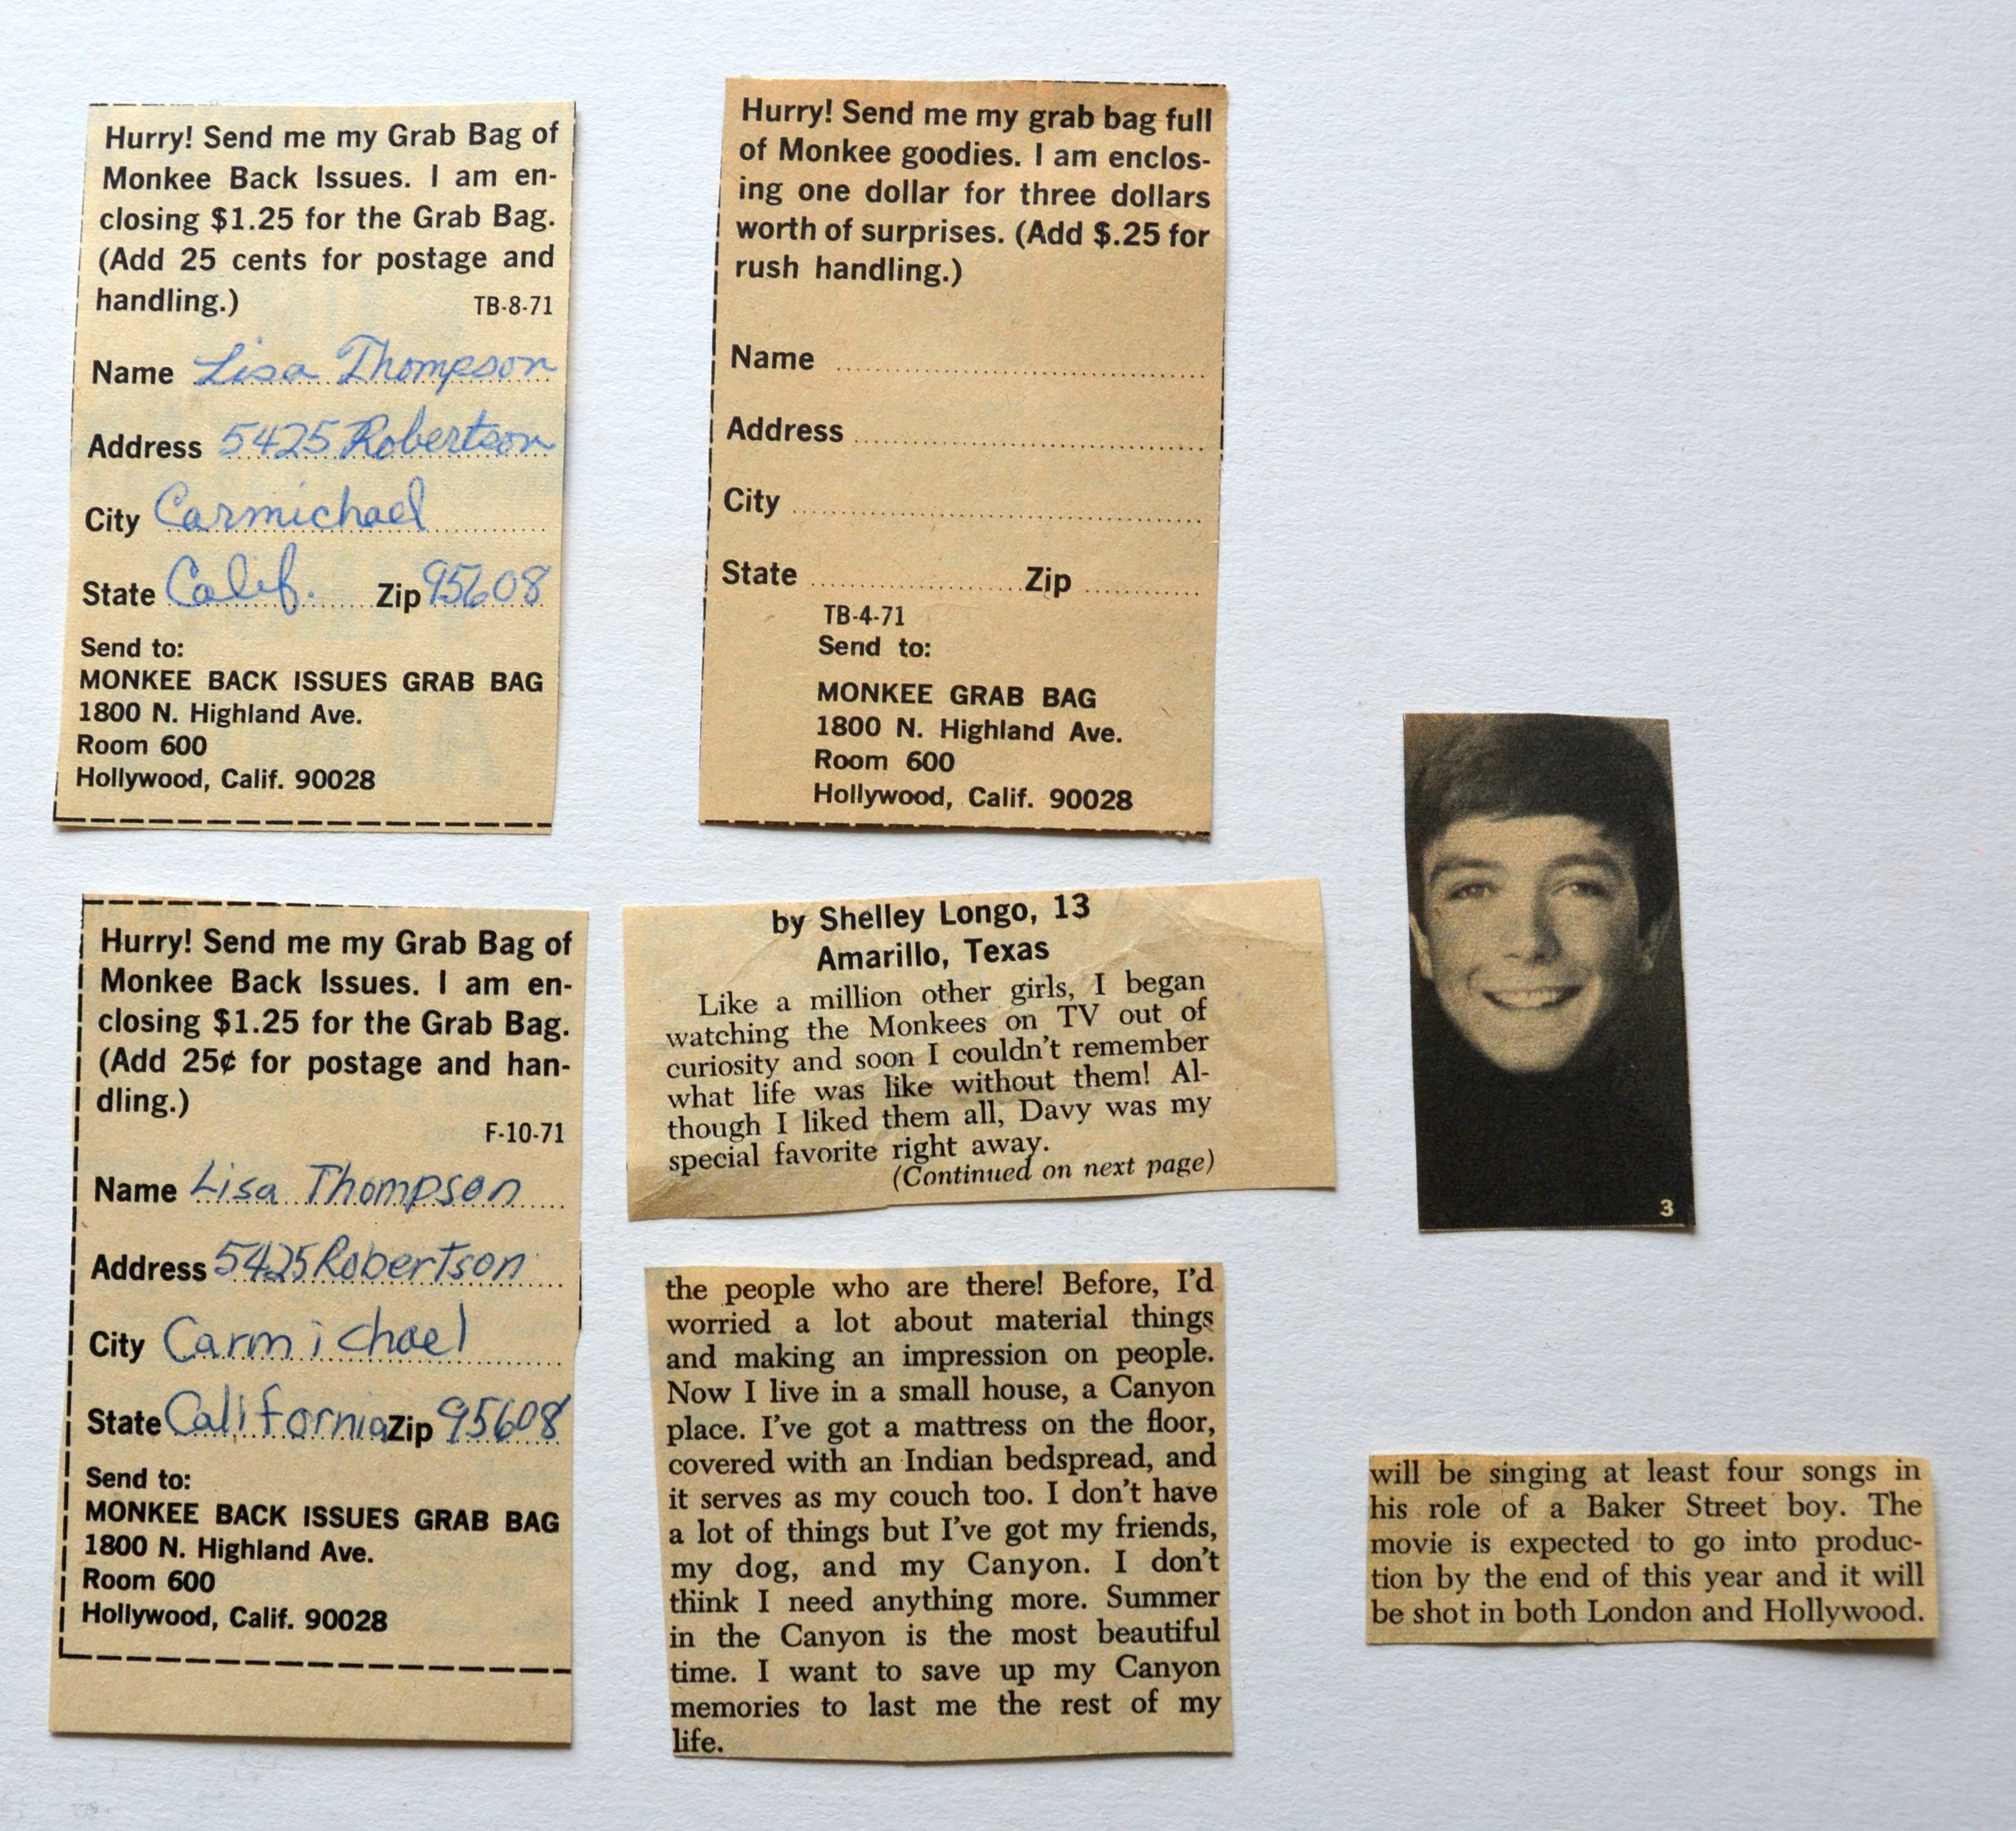 Hurry! Send me my Grab Bag of
Monkee Back Issues. I am en-
closing $1.25 for the Grab Bag.
(Add 25 cents for postage and
handling.) TB-8-71
Name Lisa Thompson
Address 5425 Robertson
City Carmichael
State Calif. Zip 95608
Send to:
MONKEE BACK ISSUES GRAB BAG
1800 N. Highland Ave.
Room 600
Hollywood, Calif. 90028
Hurry! Send me my grab bag full
of Monkee goodies. I am enclos-
ing one dollar for three dollars
worth of surprises. (Add $.25 for
rush handling.)
Name
Address
City
State Zip
TB-4-71
Send to:
MONKEE GRAB BAG
1800 N. Highland Ave.
Room 600
Hollywood, Calif. 90028
Hurry! Send me my Grab Bag of
Monkee Back Issues. I am en-
closing $1.25 for the Grab Bag.
(Add 25¢ for postage and han-
dling.)
F-10-71
Name Lisa Thompson
Address 5425 Robertson
City Carmichael
State California Zip 95608
Send to:
MONKEE BACK ISSUES GRAB BAG
1800 N. Highland Ave.
Room 600
Hollywood, Calif. 90028
by Shelley Longo, 13
Amarillo, Texas
Like a million other girls, I began
watching the Monkees on TV out of
curiosity and soon I couldn't remember
what life was like without them! Al-
though I liked them all, Davy was my
special favorite right away.
(Continued on next page)
the people who are there! Before, I'd
worried a lot about material things
and making an impression on people.
Now I live in a small house, a Canyon
place. I've got a mattress on the floor,
covered with an Indian bedspread, and
it serves as my couch too. I don't have
a lot of things but I've got my friends,
my dog, and my Canyon. I don't
think I need anything more. Summer
in the Canyon is the most beautiful
time. I want to save up my Canyon
memories to last me the rest of my
life.
3
will be singing at least four songs in
his role of a Baker Street boy. The
movie is expected to go into produc-
tion by the end of this year and it will
be shot in both London and Hollywood.